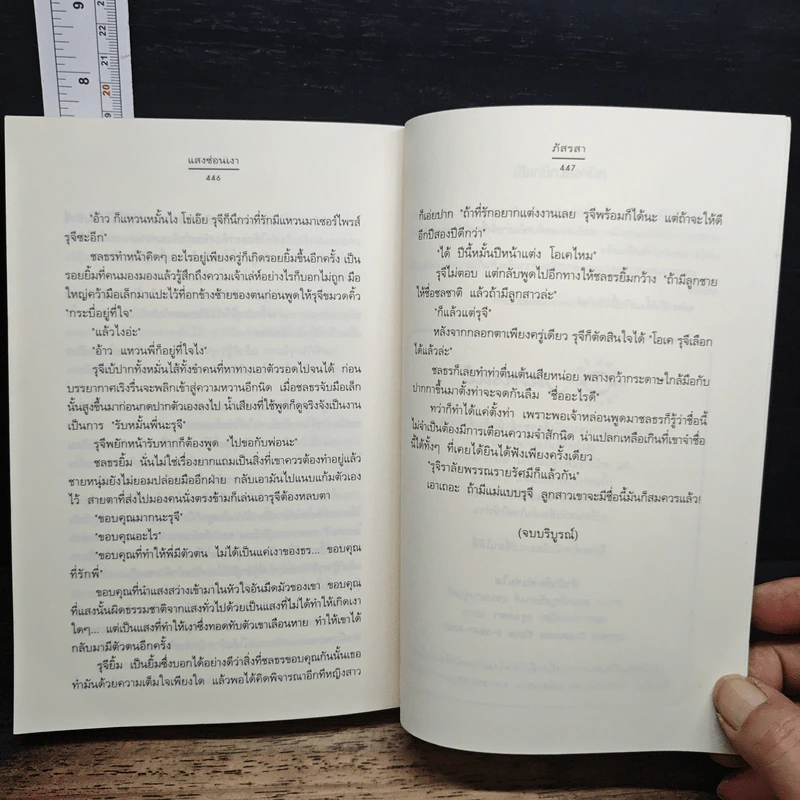 8
21
20
แสงซ่อนเงา
446
"อ้าว ก็แหวนหมั้นไง โธ่เอ๊ย รุจีก็นึกว่าที่รักมีแหวนมาเซอร์ไพรส์
รุจีซะอีก"
ชลธรทำหน้าคิดๆ อะไรอยู่เพียงครู่ก็เกิดรอยยิ้มขึ้นอีกครั้ง เป็น
รอยยิ้มที่คนมองมองแล้วรู้สึกถึงความเจ้าเล่ห์อย่างไรก็บอกไม่ถูก มือ
ใหญ่คว้ามือเล็กมาแปะไว้ที่อกข้างซ้ายของตนก่อนพูดให้รุจีขมวดคิ้ว
"กระบี่อยู่ที่ใจ"
"แล้วไงอ่ะ"
"อ้าว แหวนพี่ก็อยู่ที่ใจไง"
รุจีเบ้ปากทั้งหมั่นไส้ทั้งขำคนที่หาทางเอาตัวรอดไปจนได้ ก่อน
บรรยากาศเริงรื่นจะพลิกเข้าสู่ความหวานอีกนิด เมื่อชลธรจับมือเล็ก
นั้นสูงขึ้นมาก่อนกดปากตัวเองลงไป น้ำเสียงที่ใช้พูดก็ดูจริงจังเป็นงาน
เป็นการ "รับหมั้นพี่นะรุจี"
รุจีพยักหน้ารับหากก็ต้องพูด "ไปขอกับพ่อนะ"
ชลธรยิ้ม นั่นไม่ใช่เรื่องยากแถมเป็นสิ่งที่เขาควรต้องทำอยู่แล้ว
ชายหนุ่มยังไม่ยอมปล่อยมืออีกฝ่าย กลับเอามันไปแนบแก้มตัวเอง
ไว้ สายตาที่ส่งไปมองคนนั่งตรงข้ามก็เล่นเอารุจีต้องหลบตา
"ขอบคุณมากนะรุจี"
"ขอบคุณอะไร"
"ขอบคุณที่ทำให้พี่มีตัวตน ไม่ได้เป็นแค่เงาของธร... ขอบคุณ
ที่รักพี่"
ขอบคุณที่นำแสงสว่างเข้ามาในหัวใจอันมืดมัวของเขา ขอบคุณ
ที่แสงนั้นผิดธรรมชาติจากแสงทั่วไปด้วยเป็นแสงที่ไม่ได้ทำให้เกิดเงา
ใดๆ... แต่เป็นแสงที่ทำให้เงาซึ่งทอดทับตัวเขาเลือนหาย ทำให้เขาได้
กลับมามีตัวตนอีกครั้ง
รุจียิ้ม เป็นยิ้มซึ่งบอกได้อย่างดีว่าสิ่งที่ชลธรขอบคุณกันนั้นเธอ
ทำมันด้วยความเต็มใจเพียงใด แล้วพอได้คิดพิจารณาอีกทีหญิงสาว
ภัสรสา
447
ก็เอ่ยปาก "ถ้าที่รักอยากแต่งงานเลย รุจีพร้อมก็ได้นะ แต่ถ้าจะให้ดี
อีกปีสองปีดีกว่า"
"ได้ ปีนี้หมั้นปีหน้าแต่ง โอเคไหม"
รุจีไม่ตอบ แต่กลับพูดไปอีกทางให้ชลธรยิ้มกว้าง "ถ้ามีลูกชาย
ให้ชื่อชลชาติ แล้วถ้ามีลูกสาวล่ะ"
"ก็แล้วแต่รุจี"
หลังจากกลอกตาเพียงครู่เดียว รุจีก็ตัดสินใจได้ "โอเค รุจีเลือก
ได้แล้วล่ะ"
ชลธรก็เลยทำท่าตื่นเต้นเสียหน่อย พลางคว้ากระดาษใกล้มือกับ
ปากกาขึ้นมาตั้งท่าจะจดกันลืม "ชื่ออะไรดี"
ทว่าก็ทำได้แค่ตั้งท่า เพราะพอเจ้าหล่อนพูดมาชลธรก็รู้ว่าชื่อนี้
ไม่จำเป็นต้องมีการเตือนความจำสักนิด น่าแปลกเหลือเกินที่เขาจำชื่อ
นี้ได้ทั้งๆ ที่เคยได้ยินได้ฟังเพียงครั้งเดียว
"รุจิราลัยพรรณรายรัศมีก็แล้วกัน"
เอาเถอะ ถ้ามีแม่แบบรุจี ลูกสาวเขาจะมีชื่อนี้มันก็สมควรแล้ว!
(จบบริบูรณ์)